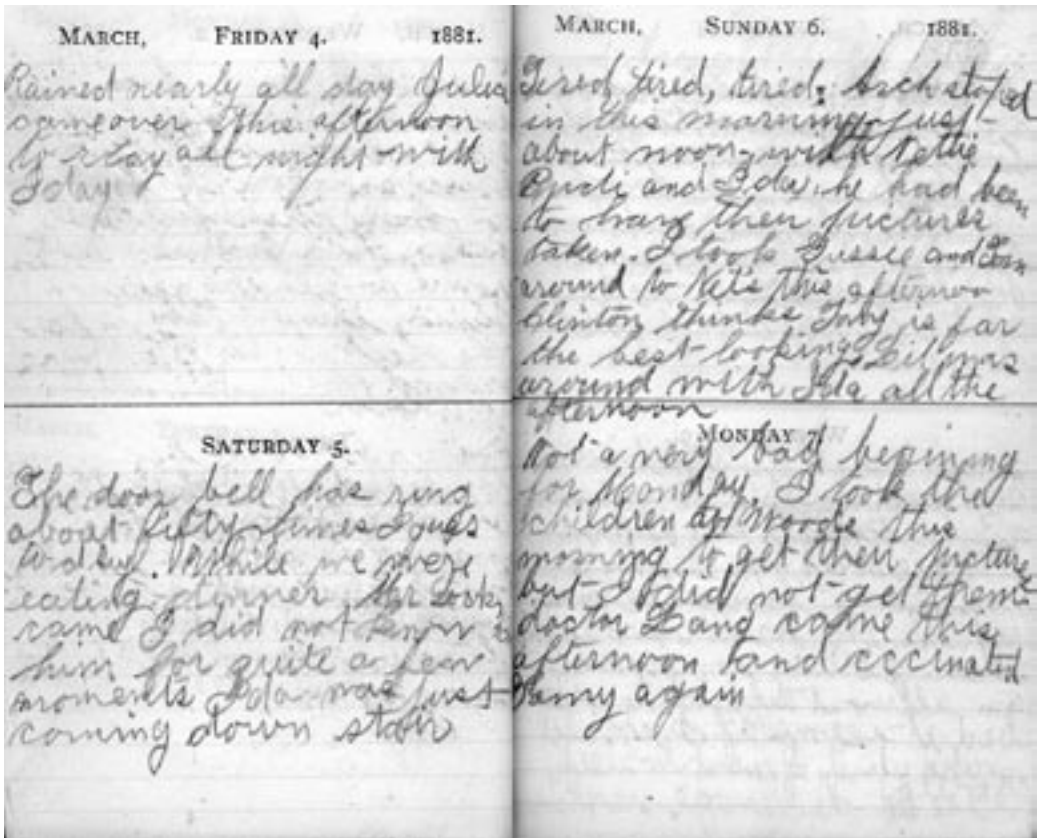 MARCH, FRIDAY 4. 1881.
Rained nearly all day Julia
came over this afternoon
to stay all night with
Iday
SATURDAY 5.
The door bell has ring
about fifty times I gues
today. While we were
eating dinner Mr
came I did not know
him for quite a few
moments Ida was just
coming down stair
MARCH, SUNDAY 6. 1881.
Tired tired, tired, stoped
in this morning just
about noon, with
and Ida, he had been
to have their pictures
taken. I took Gussie and
around to Net's this afternoo
Clinton thinks is far
the best looking, was
around with Ida all the
afternoon
MONDAY 7.
Not a very bad begining
for Monday. I took the
children to Woods this
morning to get their picture
but I did not get them
doctor came this
afternoon and
again